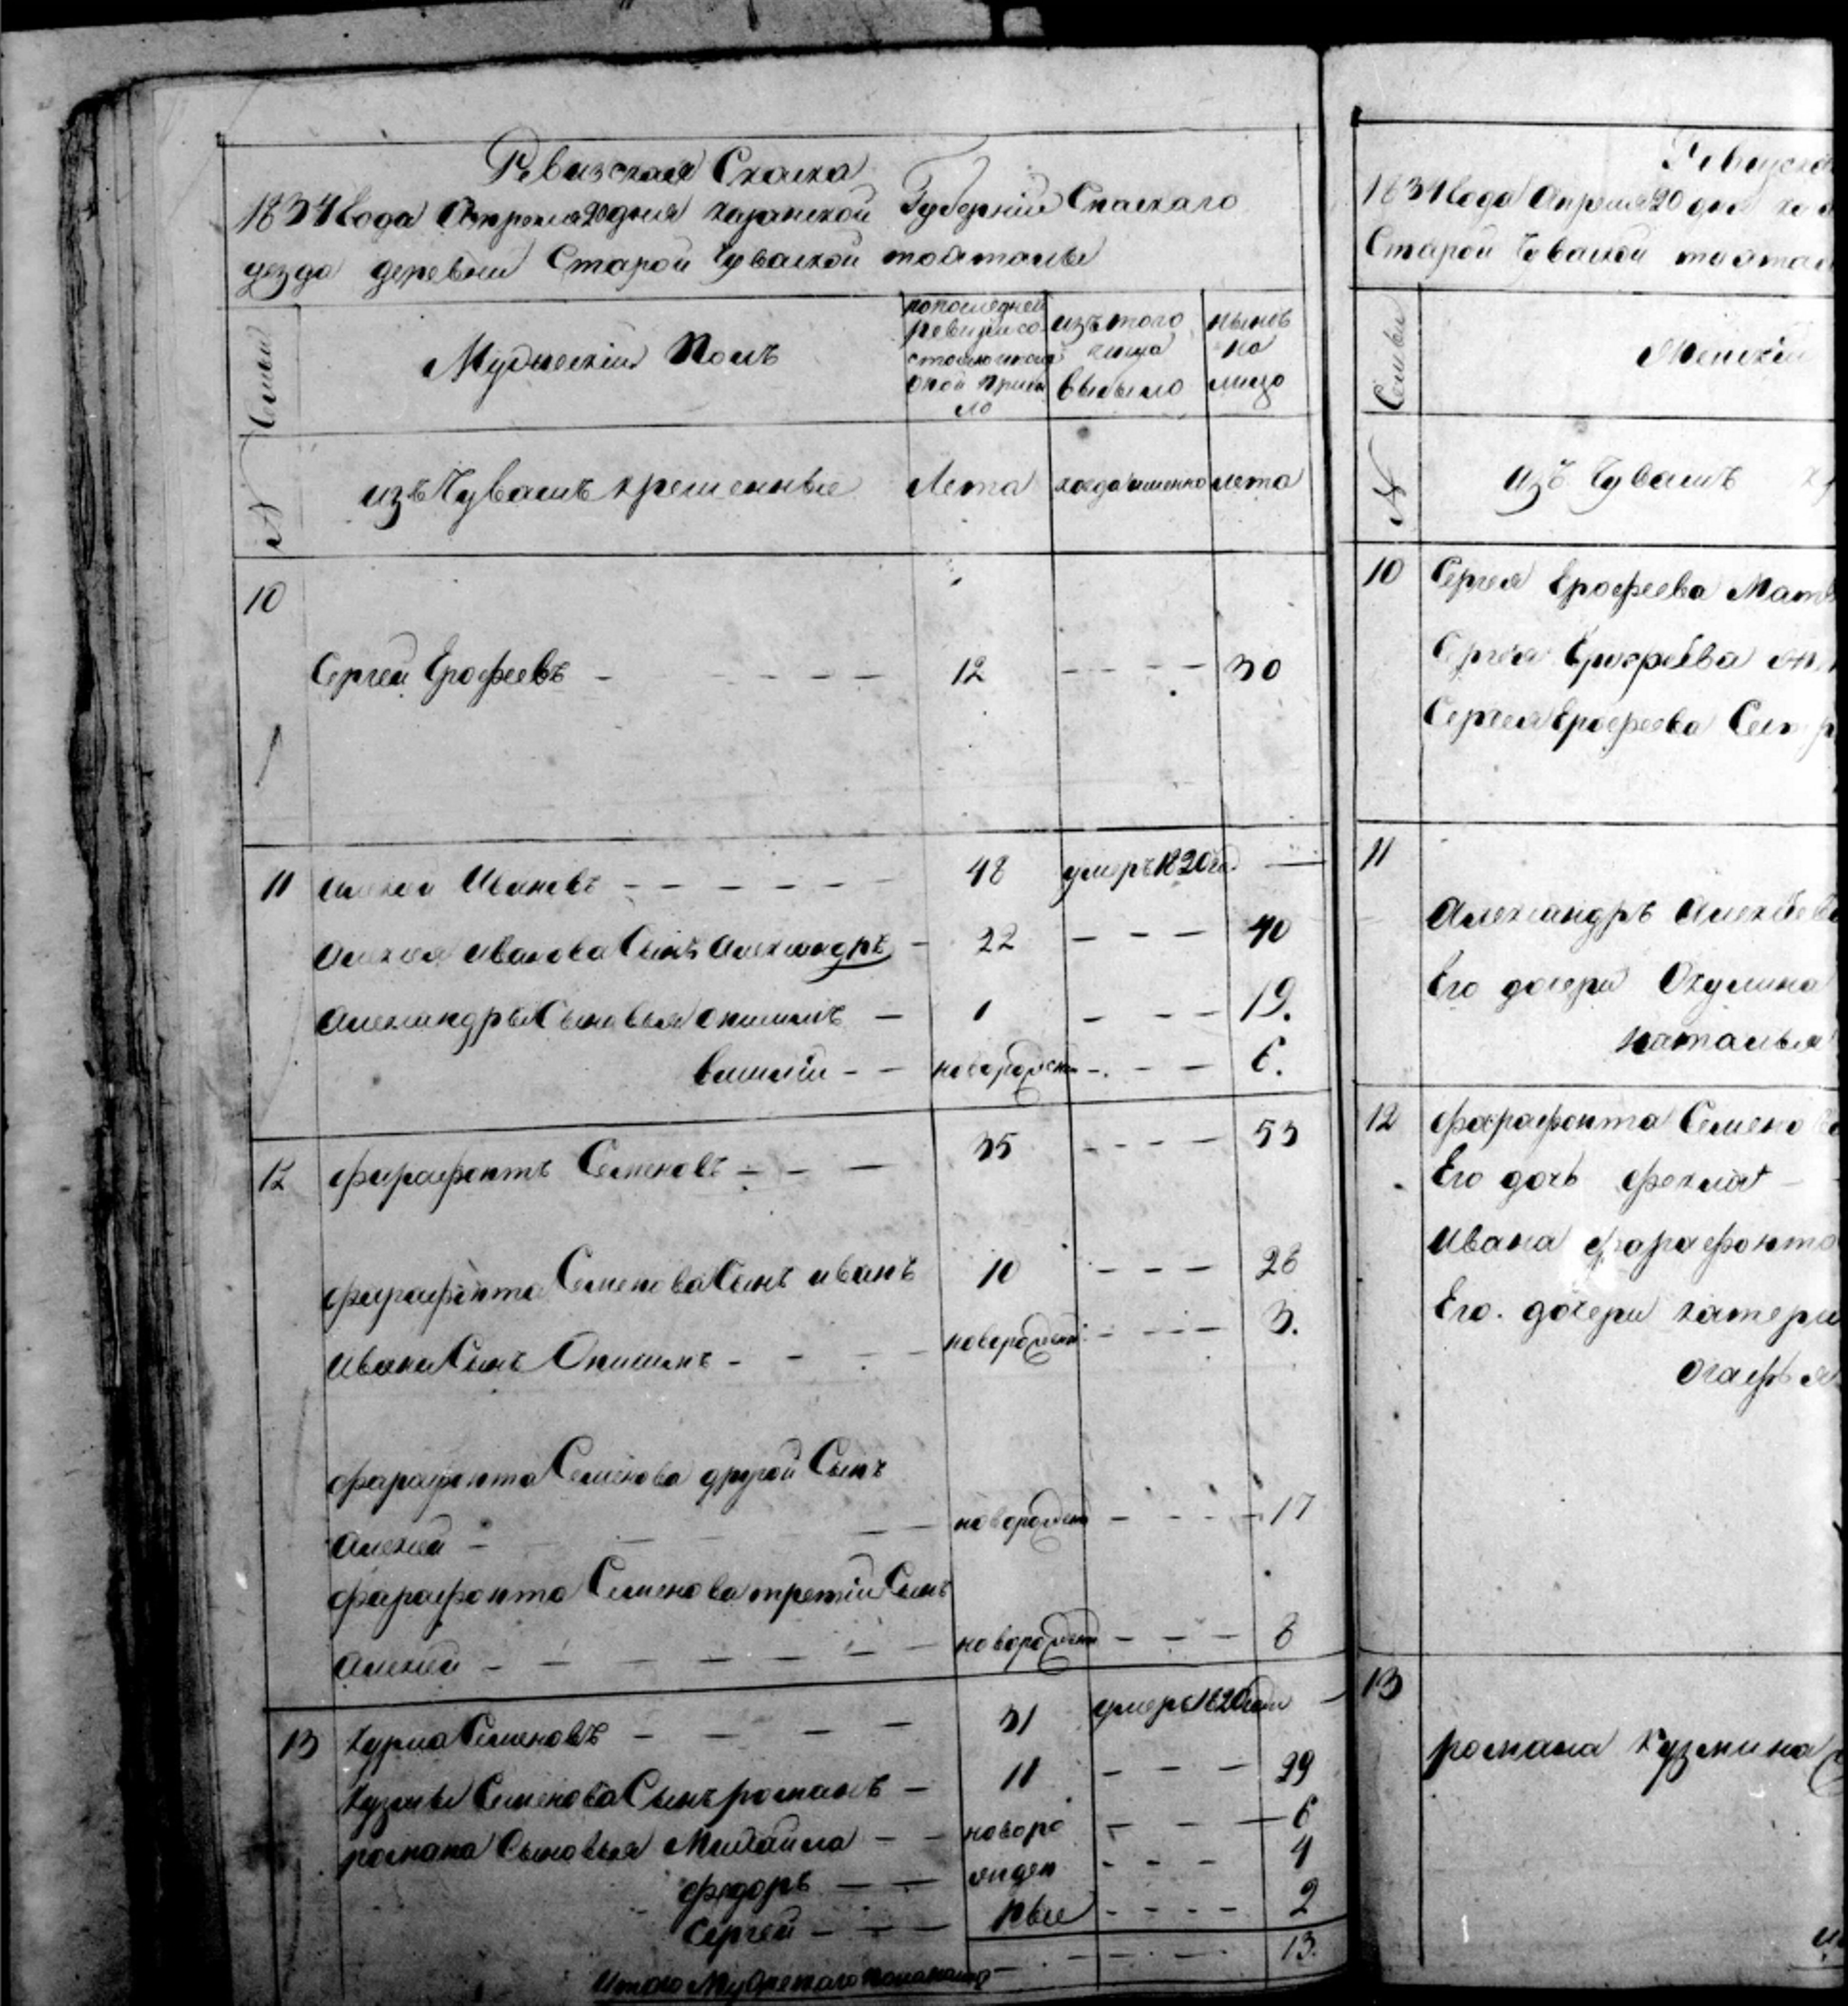 Ревизская Сказка
1834 Года Апреля 20 дня казанской Губернии Спаскаго
уезда деревни Старой Чуваской
Семьи
Мужеский Полъ
по последней
ревизии со
стояло и после
оной прибы
ло
изъ того
числа
выбыло
ныне
на
лицо
№
изъ Чувашъ крещенные
Лета
когда именно
лета
10
Сергей Ерофеевъ - - - - - -
12
- - - -
30
11
алексей Ивановъ - - - - - -
48
умеръ 1820 год
—
алексея иванова Сынъ александръ -
22
- - -
40
александры Сыновья онисимъ -
1
- - -
19.
василий - -
новорожден
- - -
6.
12
фарафонтъ Семеновъ - - -
35
- - - -
53
фарафонта Семенова Сынъ иванъ
10
- - -
28
ивана Сынъ Онисимъ - - - -
новорожден
- - - -
3.
фарафонта Семенова другой Сынъ
алексей - - - - -
новорожден
- - - -
17
фарафонта Семенова третий Сынъ
алексей - - - - - - -
новорожден
- - -
8
13
кузма Семеновъ - - - -
31
умеръ 1820 годе
—
кузмы Семенова Сынъ романъ -
11
- - -
29
романа Сыновья Михаила - -
новоро
- - -
6
федоръ - -
жден
- - -
4
Сергей - - -
ные
- - - -
2
Итого Мужескаго пола на лицо
- - - -
13.
Ревизска
1834 года Апреля 20 дня ка
Старой Чуваской
Семьи
Женский
№
Изъ Чувашъ
10
Сергея Ерофеева Мать
Сергея Ерофеева
Сергея Ерофеева Сестра
11
Александръ Алексеев
Его дочери Окулина
наталья
12
фарафонта Семенов
Его дочь фекла -
Ивана фарафонто
Его. дочери катери
огафья
13
романа кузмина